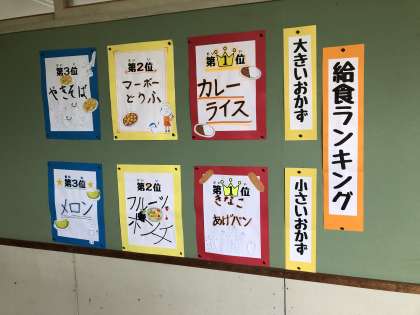 給食ランキング
大きいおかず
第1位
カレー
ライス
第2位
マーボー
どうふ
第3位
やきそば
小さいおかず
第1位
きなこ
あげパン
第2位
フルーツ
ポンチ
第3位
メロン